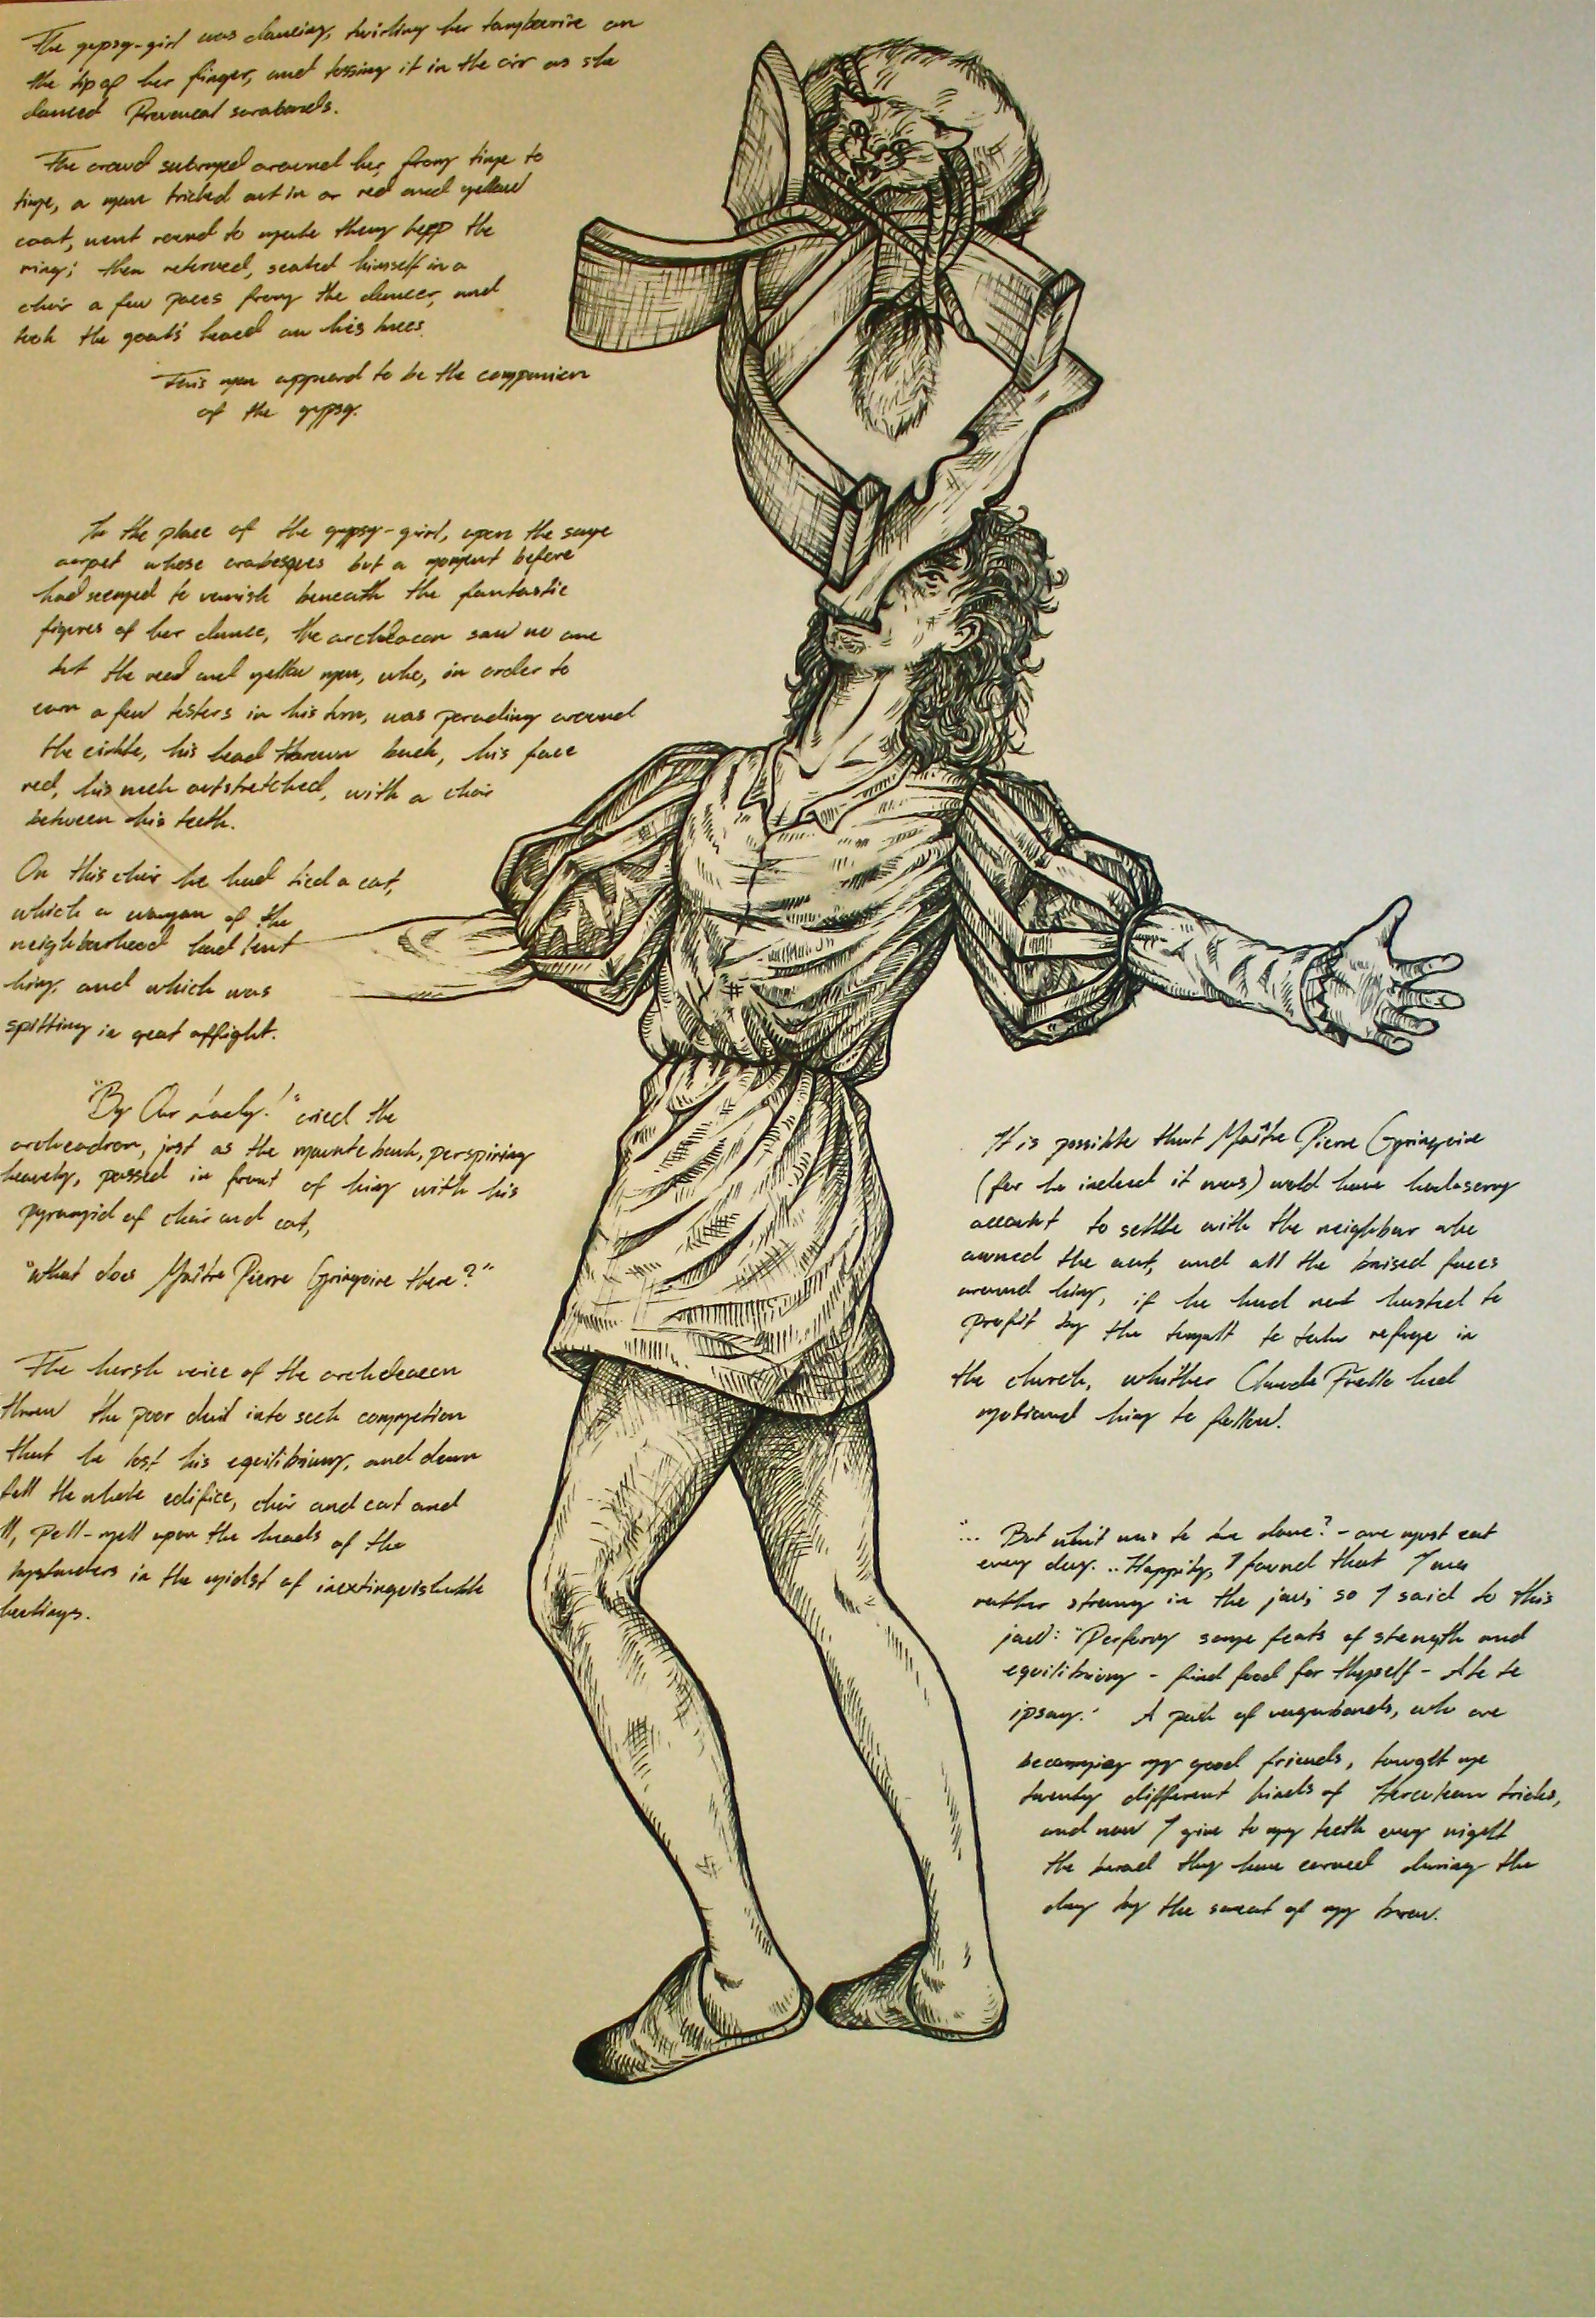 The gypsy-girl was dancing, twirling her tambourine on
the tip of her finger, and tossing it in the air as she
danced Provencal sarabands.
The crowd swarmed around her, from time to
time, a man tricked out in a red and yellow
coat, went round to make them keep the
ring; then returned, seated himself in a
chair a few paces from the dancer, and
took the goat's head on his knees.
This man appeared to be the companion
of the gypsy.
In the place of the gypsy-girl, upon the same
carpet whose arabesques but a moment before
had seemed to vanish beneath the fantastic
figures of her dance, the archdeacon saw no one
but the red and yellow man, who, in order to
earn a few testers in his turn, was parading around
the circle, his head thrown back, his face
red, his neck outstretched, with a chair
between his teeth.
On this chair he had tied a cat,
which a woman of the
neighbourhood had lent
him, and which was
spitting in great affright.
"By Our Lady!" cried the
archeadron, just as the mountebank, perspiring
heavely, passed in front of him with his
pyramid of chair and cat,
"What does Maître Pierre Gringoire there?"
The harsh voice of the archdeacon
threw the poor devil into such commotion
that he lost his equilibrium, and down
fell the whole edifice, chair and cat and
ll, pell-mell upon the heads of the
bystanders in the midst of inextinguishable
hootings.
It is possible that Maître Pierre Gringoire
(for he indeed it was) wold have had a sorry
account to settle with the neighbour who
owned the cat, and all the bruised faces
around him, if he had not hasted to
profit by the tumult to take refuge in
the church, whither Claude Frollo had
motioned him to follow.
"... But what was to be done? - one must eat
every day. .. Happily, I found that I was
rather strong in the jaw; so I said to this
jaw: "Perform some feats of stength and
equilibrium - find food for thyself - Ale te
ipsam.' A pack of vagabonds, who are
becoming my good friends, tought me
twenty different kinds of Herculean tricks,
and now I give to my teeth every night
the bread they have earned during the
day by the sweat of my brow.